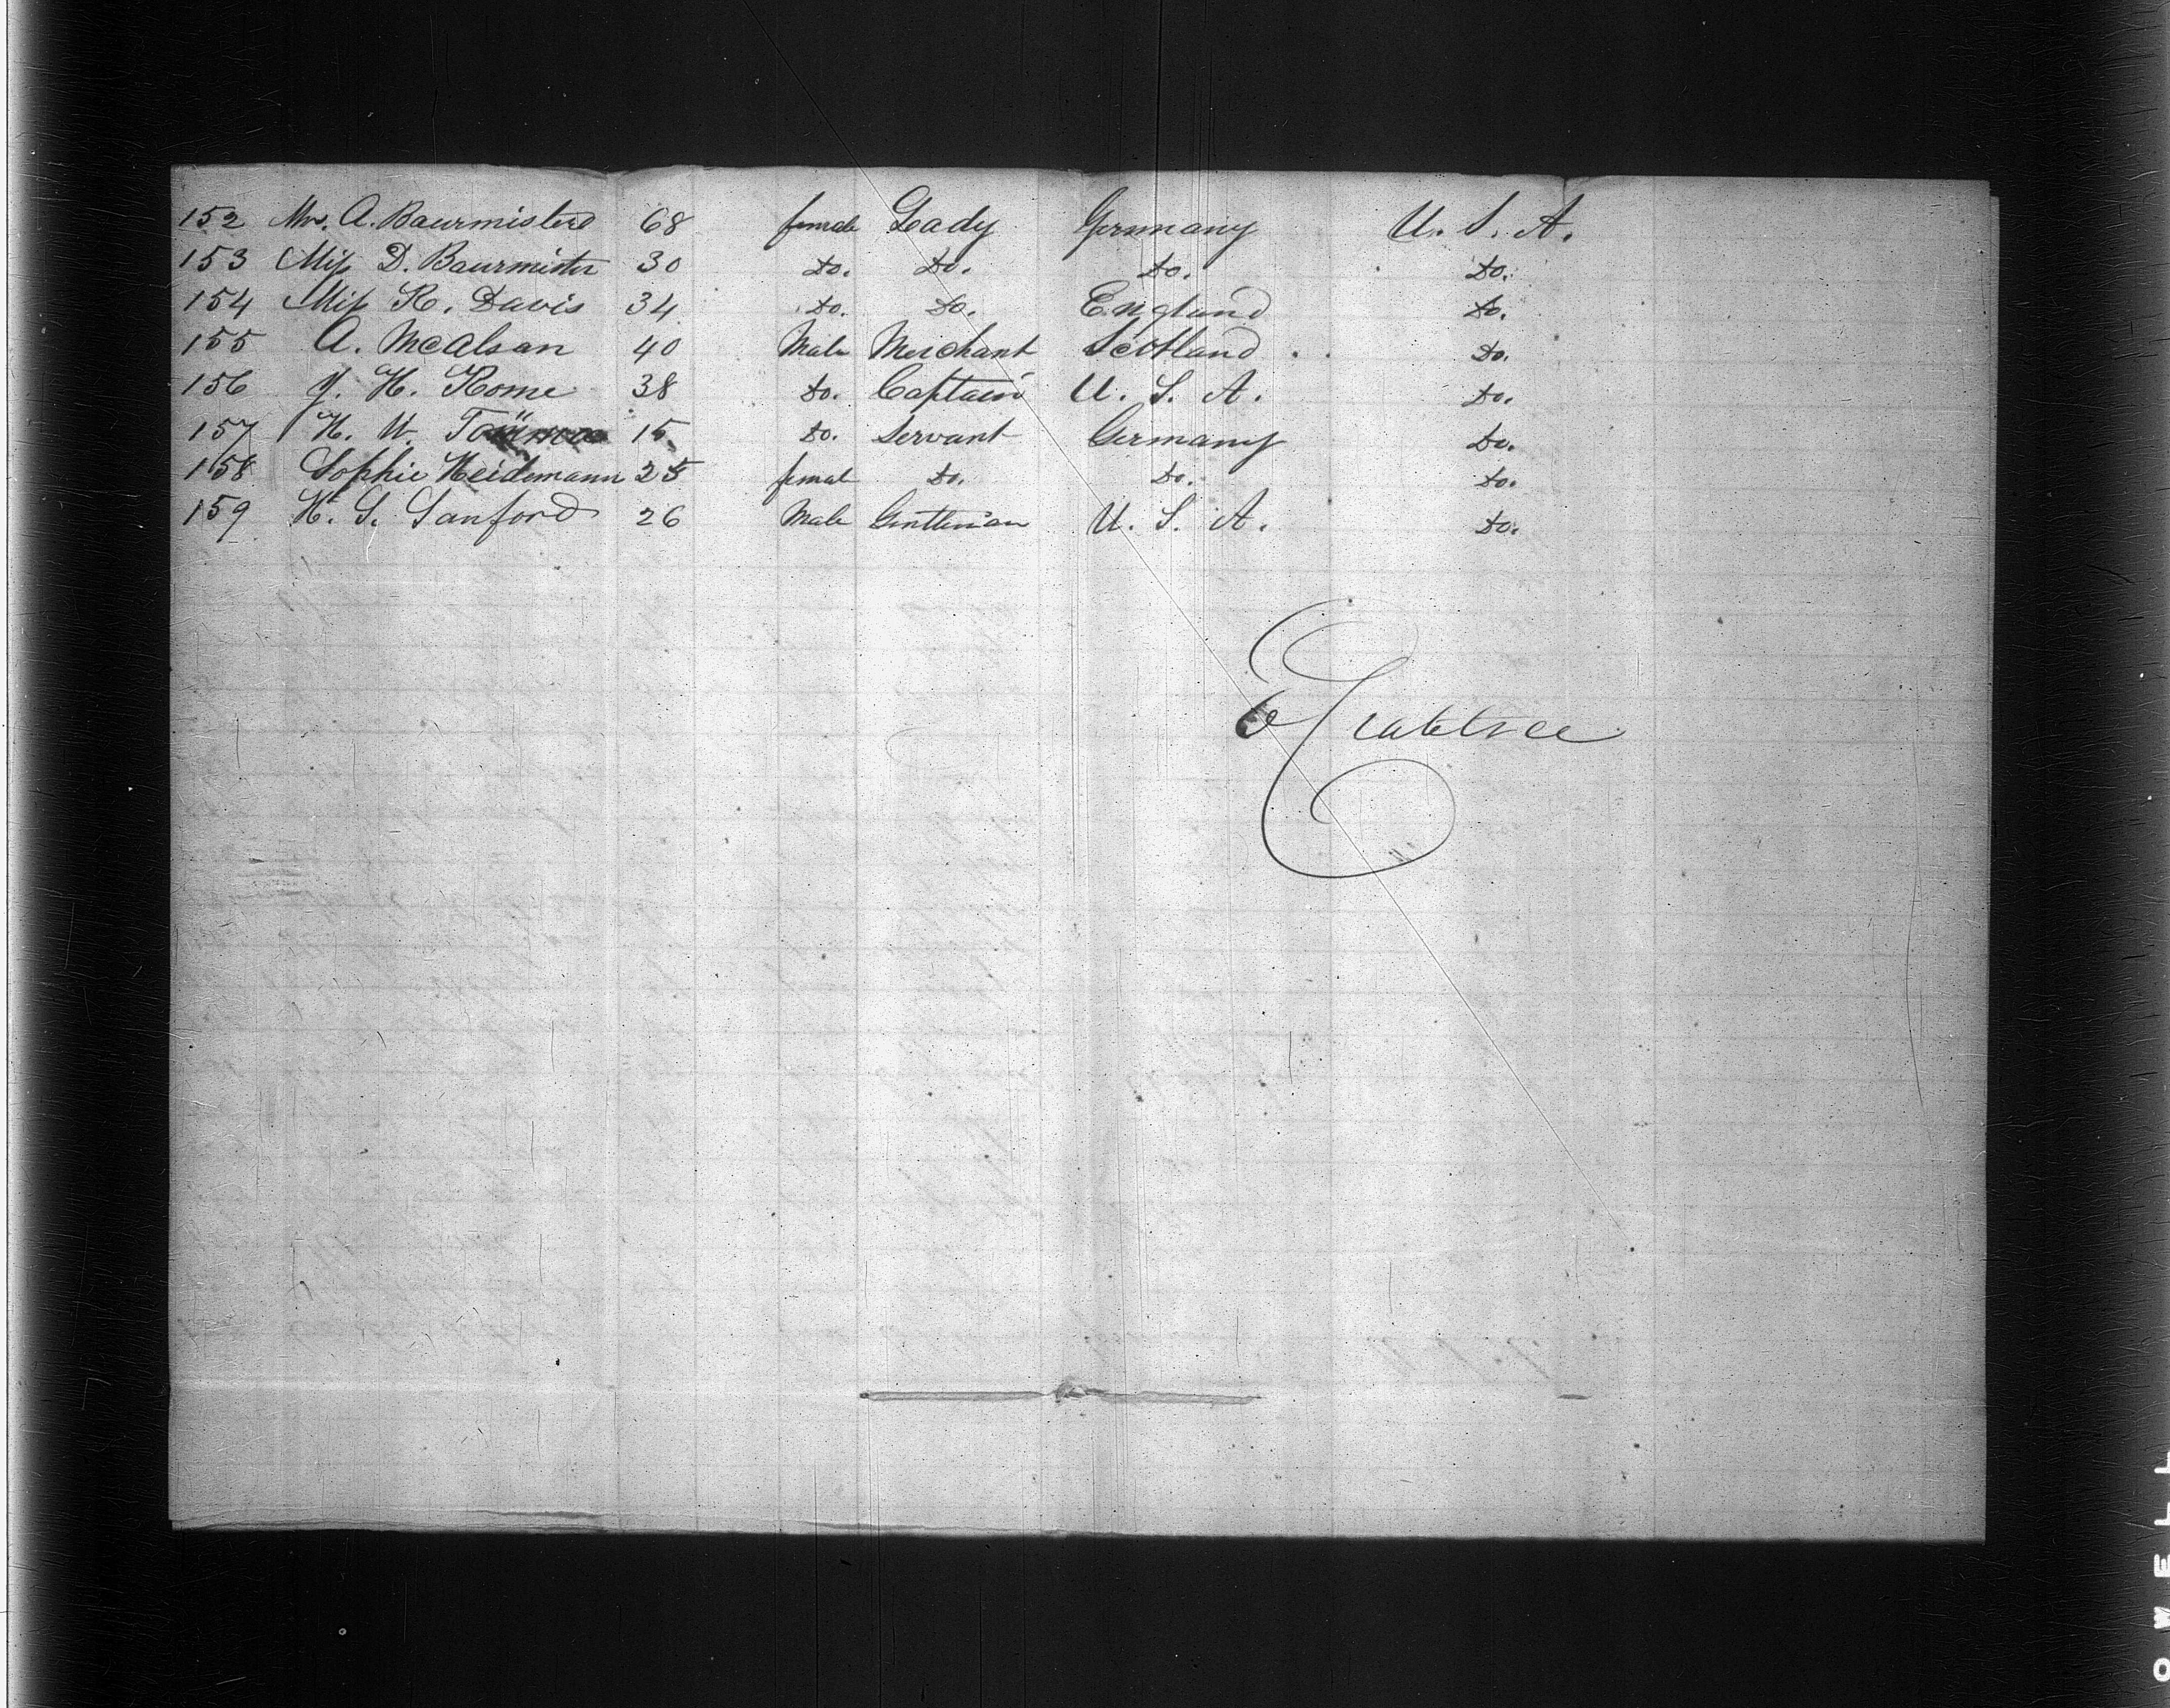 152 Mrs. A. Baurmister 68 female Lady Germany U. S. A.
153 Miss D. Baurmister 30 do. do. do. do.
154 Miss R. Davis 34 do. do. England do.
155 A. McAlsan 40 Male Merchant Scotland do.
156 J. H. Rome 38 do. Captain U. S. A. do.
157 H. W. 15 do. Servant Germany do.
158 Sophie Heidemann 25 female do. do. do.
159 H. S. Sanford 26 Male Gentleman U. S. A. do.
Crabtree
OWELL